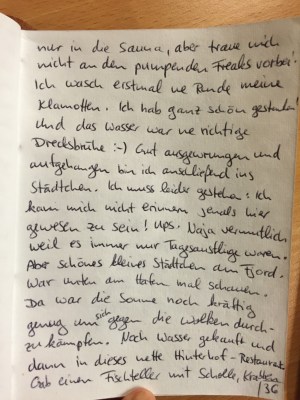 nur in die Sauna, aber traue mich
nicht an den pumpenden Freaks vorbei!
Ich wasch erstmal ne Runde meine
Klamotten. Ich hab ganz schön gestunken!
Und das Wasser war ne richtige
Drecksbrühe :-) Gut ausgewrungen und
aufgehangen bin ich anschließend ins
Städtchen. Ich muss leider gestehen: Ich
kann mich nicht erinnern jemals hier
gewesen zu sein! Ups. Naja vermutlich
weil es immer nur Tagesausflüge waren.
Aber schönes kleines Städtchen am Fjord.
War unten am Hafen mal schauen.
Da war die Sonne noch kräftig
genug um sich gegen die Wolken durch-
zukämpfen. Noch Wasser gekauft und
dann in dieses nette Hinterhof-Restaurant.
Gab einen Fischteller mit Scholle,
/36